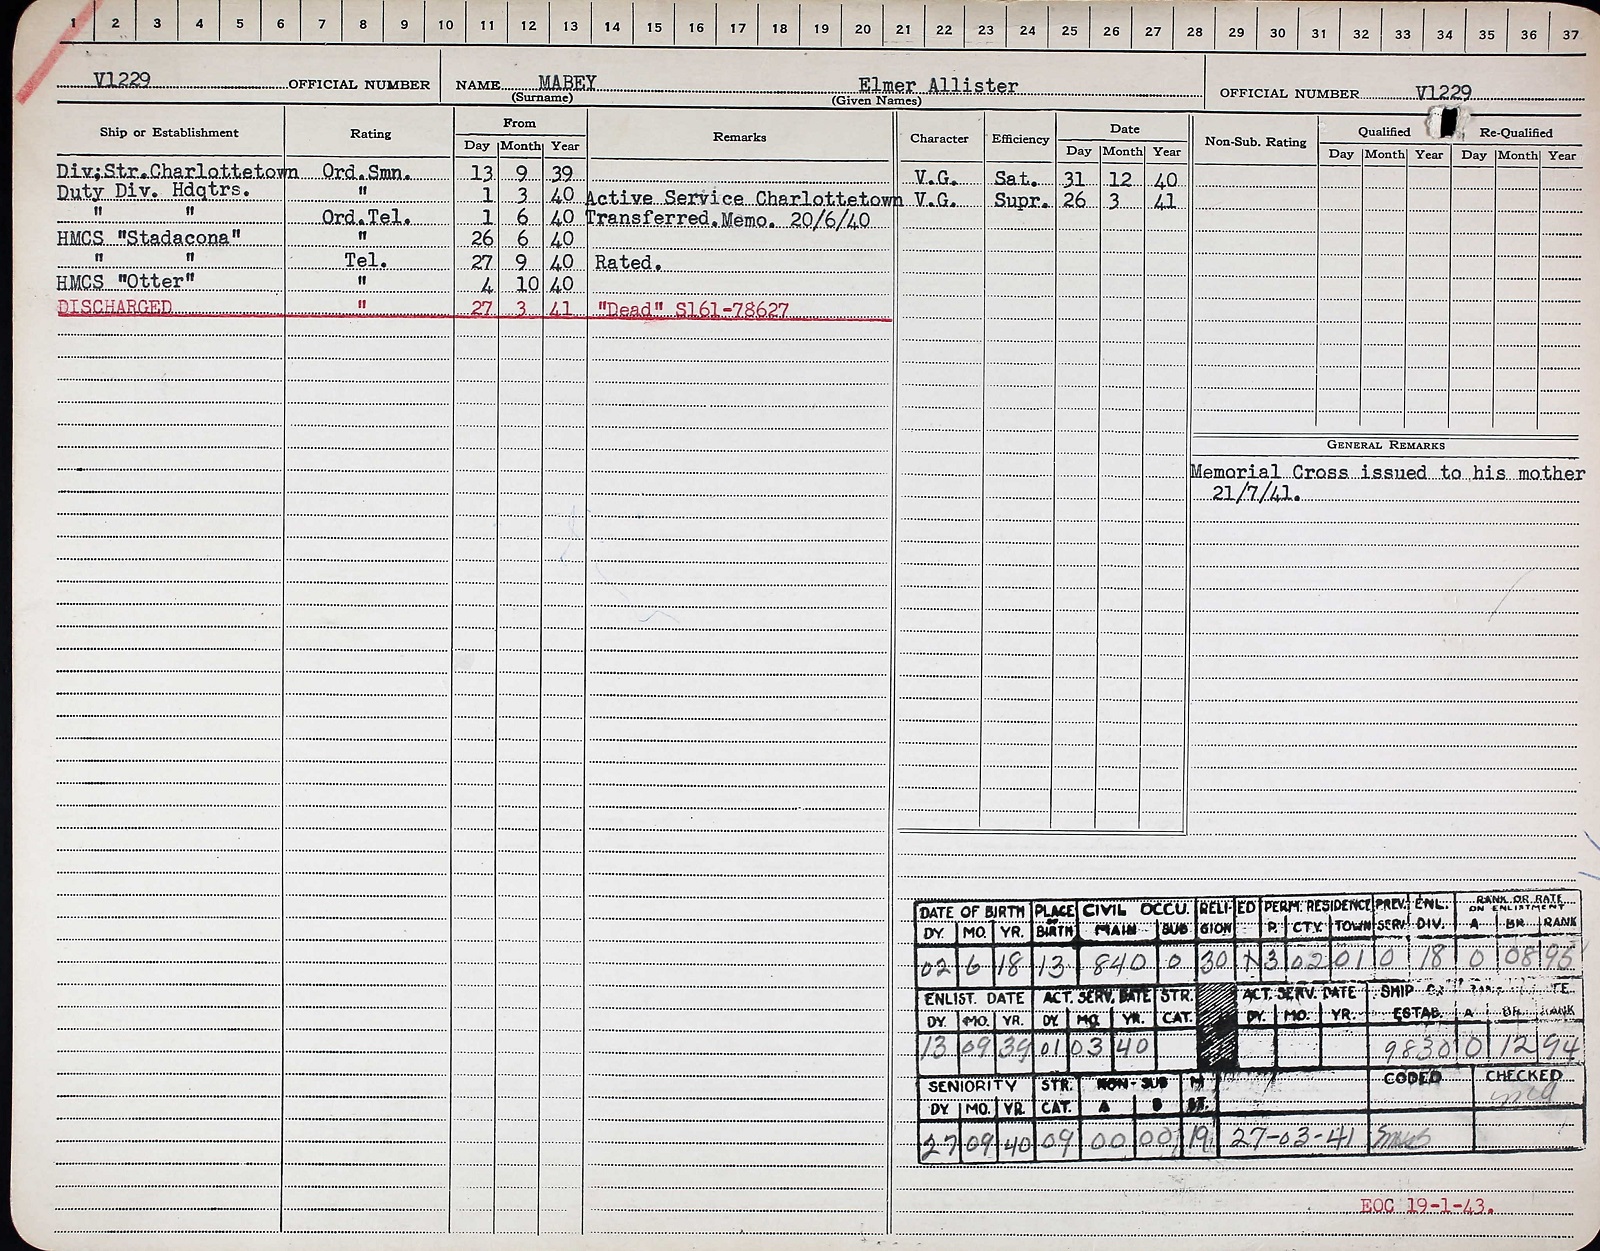 1 2 3 4 5 6 7 8 9 10 11 12 13 14 15 16 17 18 19 20 21 22 23 24 25 26 27 28 29 30 31 32 33 34 35 36 37
V1229 OFFICIAL NUMBER NAME MABEY Elmer Allister OFFICIAL NUMBER V1229
(Surname) (Given Names)
Ship or Establishment Rating From Remarks Character Efficiency Date Non-Sub. Rating Qualified Re-Qualified
Day Month Year Day Month Year Day Month Year Day Month Year
Div;Str.Charlottetown Ord.Smn. 13 9 39 V.G. Sat. 31 12 40
Duty Div. Hdqtrs. " 1 3 40 Active Service Charlottetown V.G. Supr. 26 3 41
" " Ord.Tel. 1 6 40 Transferred.Memo. 20/6/40
HMCS "Stadacona" " 26 6 40
" " Tel. 27 9 40 Rated.
HMCS "Otter" " 4 10 40
DISCHARGED " 27 3 41 "Dead" S161-78627
GENERAL REMARKS
Memorial Cross issued to his mother
21/7/41.
DATE OF BIRTH PLACE OF BIRTH CIVIL OCCU. RELIGION ED PERM. RESIDENCE PREV. SERV. ENL. DIV. RANK OR RATE ON ENLISTMENT
DY. MO. YR. MAIN SUB P. CTY. TOWN A BR. RANK
02 6 18 13 840 0 30 3 02 01 0 18 0 08 95
ENLIST. DATE ACT. SERV. DATE STR. CAT. ACT. SERV. DATE SHIP OR ESTAB.
DY. MO. YR. DY. MO. YR. DY. MO. YR. A BR. RANK
13 09 39 01 03 40 9830 0 12 94
SENIORITY STR. CAT. NON-SUB CODED CHECKED
DY. MO. YR. A B
27 09 40 09 00 00 19 27-03-41
EOC 19-1-43.